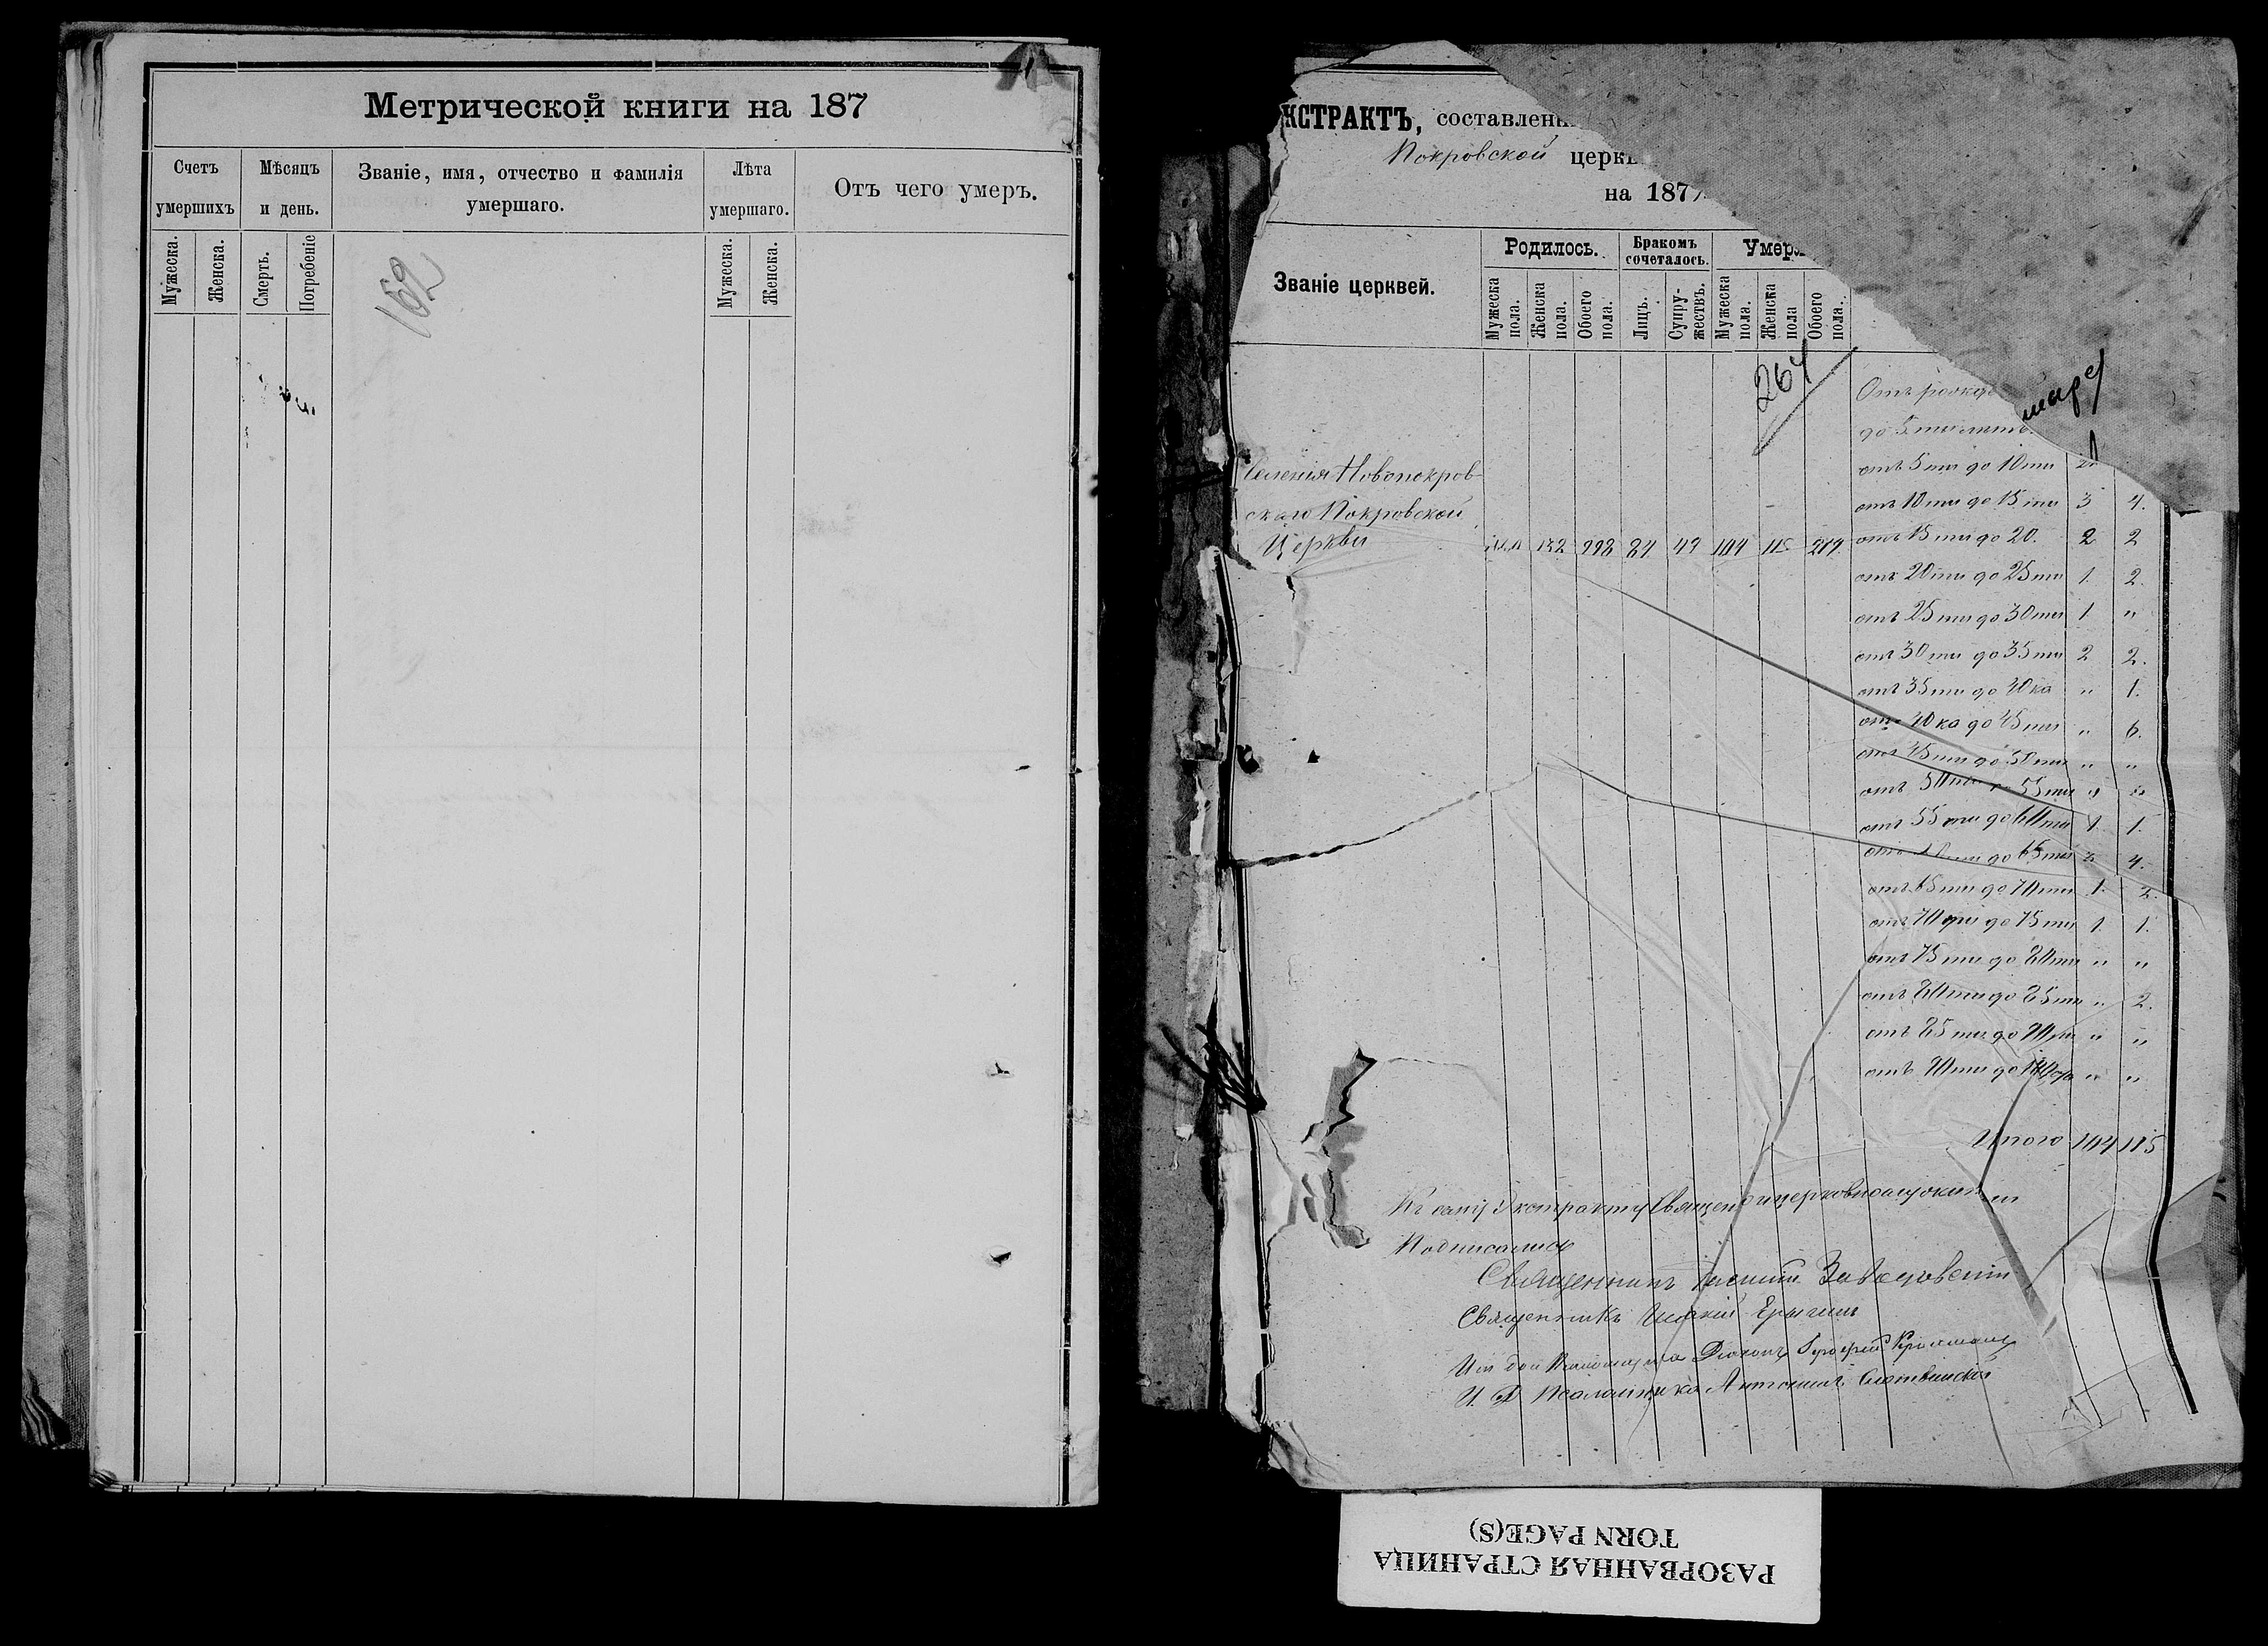 Метрической книги на 187
Счетъ умершихъ
Мѣсяцъ и день.
Званіе, имя, отчество и фамилія умершаго.
Лѣта умершаго.
Отъ чего умеръ.
Мужеска.
Женска.
Смерть.
Погребеніе
Мужеска.
Женска.
162
КСТРАКТЪ, составленн
Покровской церкв
на 187
Званіе церквей.
Родилось.
Бракомъ сочеталось.
Умерл
Мужеска пола.
Женска пола.
Обоего пола.
Лицъ.
Супружествъ.
Мужеска пола.
Женска пола
Обоего пола.
264
Отъ рожде
до 5 ти лѣтъ
Селенія Новопокров-
скаго Покровской
Церкви
132 298 84 49 104 115 219
отъ 5 ти до 10 ти
отъ 10 ти до 15 ти 3 4.
отъ 15 ти до 20. 2 2
отъ 20 ти до 25 ти 1. 2.
отъ 25 ти до 30 ти 1 "
отъ 30 ти до 35 ти 2 2.
отъ 35 ти до 40 ка " 1.
отъ 40 ка до 45 ти " 6.
отъ 45 ти до 50 ти " "
отъ 50 ти 55 ти " "
отъ 55 ти до 60 ти 1. 1.
до 65 ти 4.
отъ 65 ти до 70 ти 1. 2.
отъ 70 ти до 75 ти 1. 1.
отъ 75 ти до 80 ти " "
отъ 80 ти до 85 ти " 2.
отъ 85 ти до 90 ти " "
отъ 90 ти до " "
Итого 104 115
Къ сему Экстракту Священно
Подписались
Священникъ
Священникъ
И. Д. Псаломщика Антоній
РАЗОРВАННАЯ СТРАНИЦА
TORN PAGE(S)